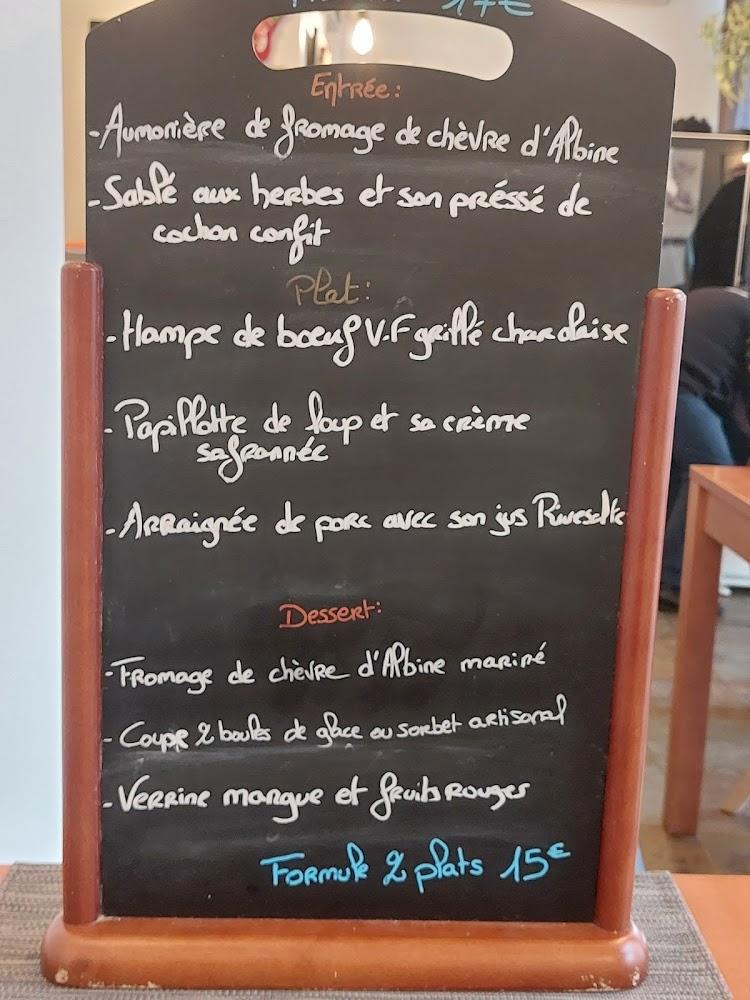 17€
Entrée:
-Aumonière de fromage de chèvre d'Albine
-Sablé aux herbes et son préssé de
cochon confit
Plat:
-Hampe de boeuf V.F grillé charolaise
-Papillotte de loup et sa crème
safrannée
-Arraignée de porc avec son jus Rivesalte
Dessert:
-Fromage de chèvre d'Albine mariné
-Coupe 2 boules de glace ou sorbet artisanal
-Verrine mangue et fruits Rouges
Formule 2 plats 15€